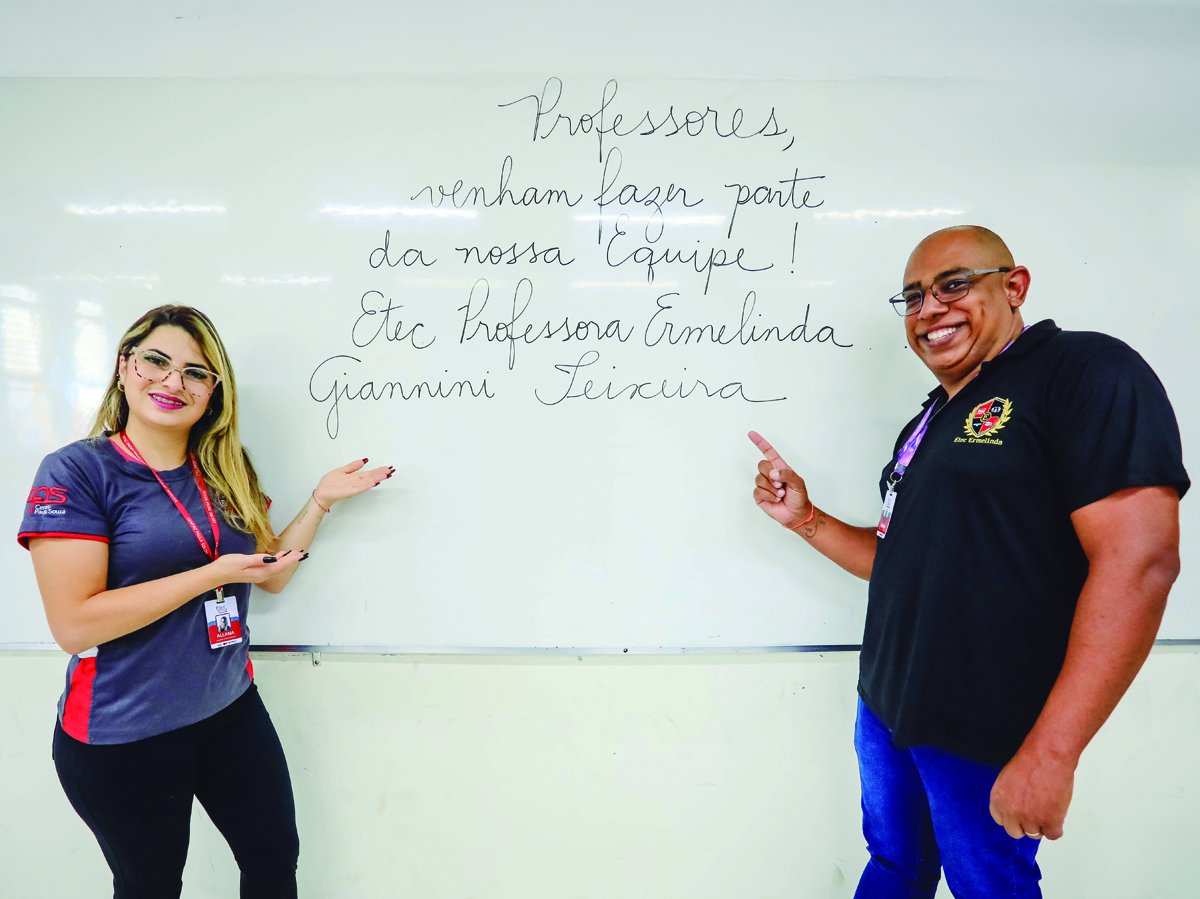 Professores,
venham fazer parte
da nossa Equipe!
Etec Professora Ermelinda
Giannini Teixeira
CPS
Centro
Paula Souza
ALLANA
Etec Ermelinda